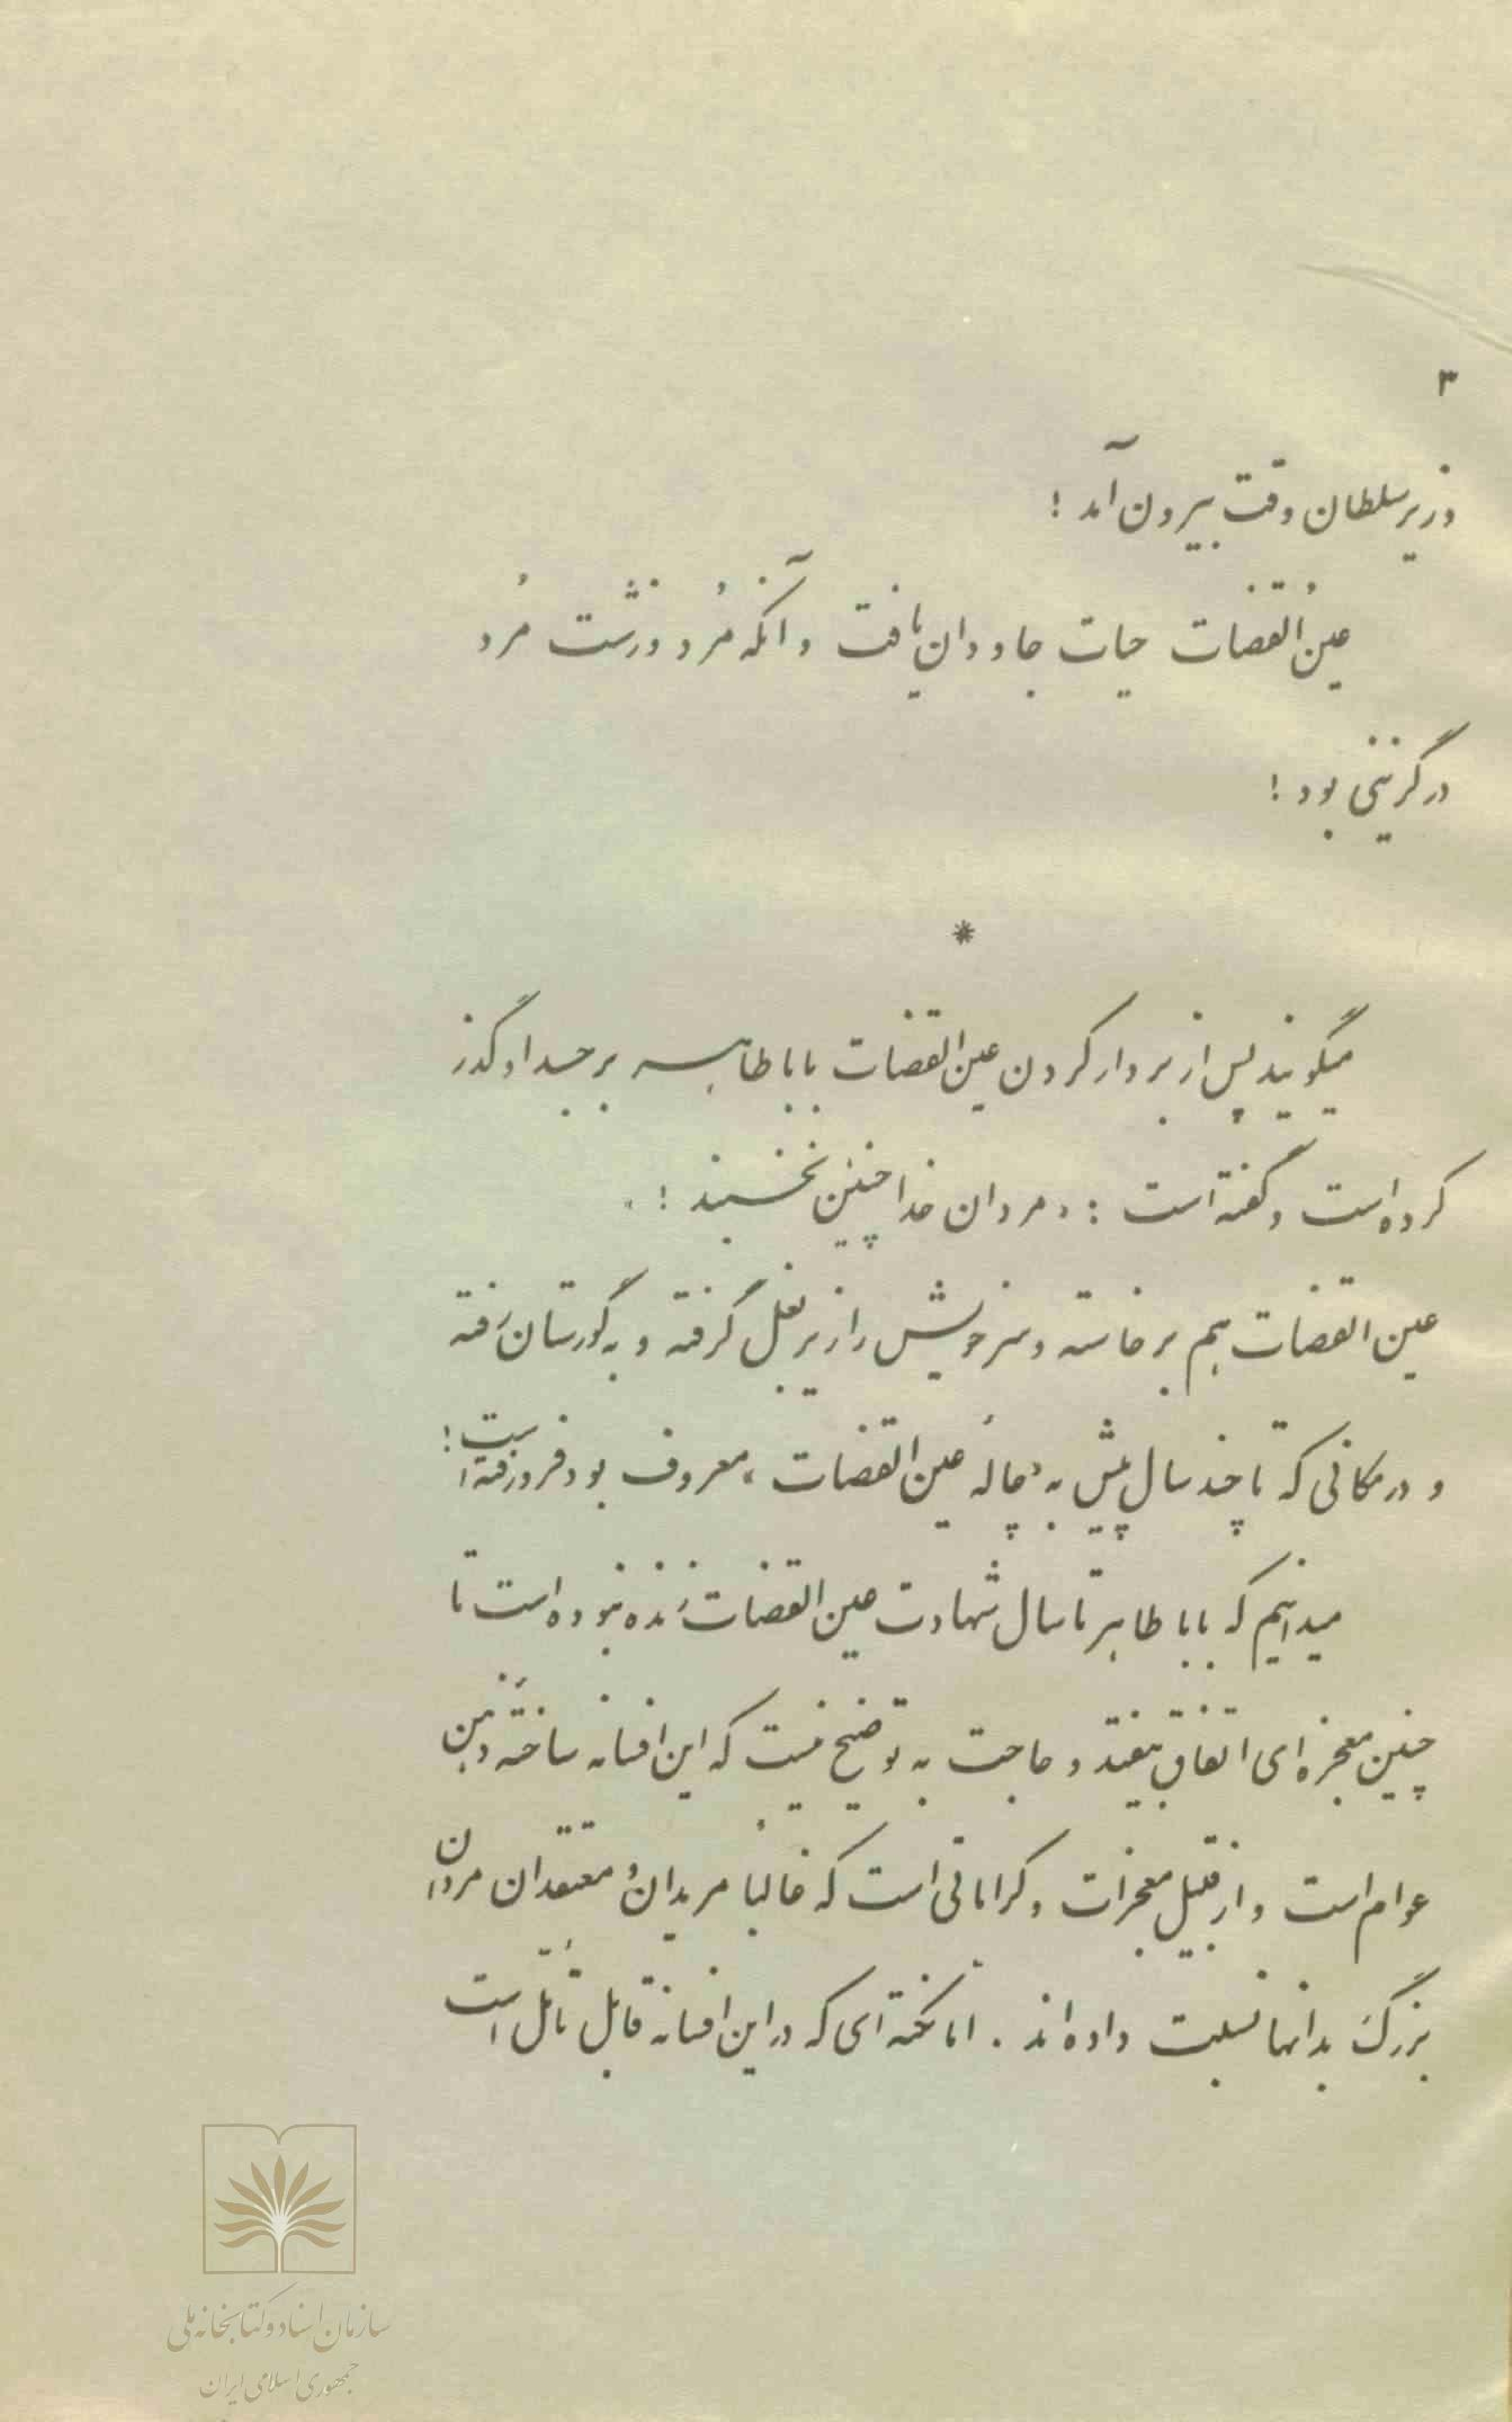 ۳
وزیر سلطان وقت بیرون آمد !
عینُ القضات حیات جاودان یافت و آنکه مُرد و زشت مُرد
درگزینی بود !
*
میگویند پس از بردار کردن عین القضات باباطاهر بر جسد او گذر
کرده است و گفته است : « مردان خدا چنین نخسبند ! »
عین القضات هم برخاسته و سر خویش را زیر بغل گرفته و به گورستان رفته
و در مکانی که تا چند سال پیش به « چالهٔ عین القضات » معروف بود فرو رفته است !
میدانیم که باباطاهر تا سال شهادت عین القضات زنده نبوده است تا
چنین معجزه ای اتفاق بیفتد و حاجت به توضیح نیست که این افسانه ساختهٔ ذهن
عوام است و از قبیل معجزات و کراماتی است که غالباً مریدان و معتقدان مردان
بزرگ بدانها نسبت داده اند . اما نکته ای که در این افسانه قابل تأمّل است
سازمان اسناد و کتابخانه ملی
جمهوری اسلامی ایران